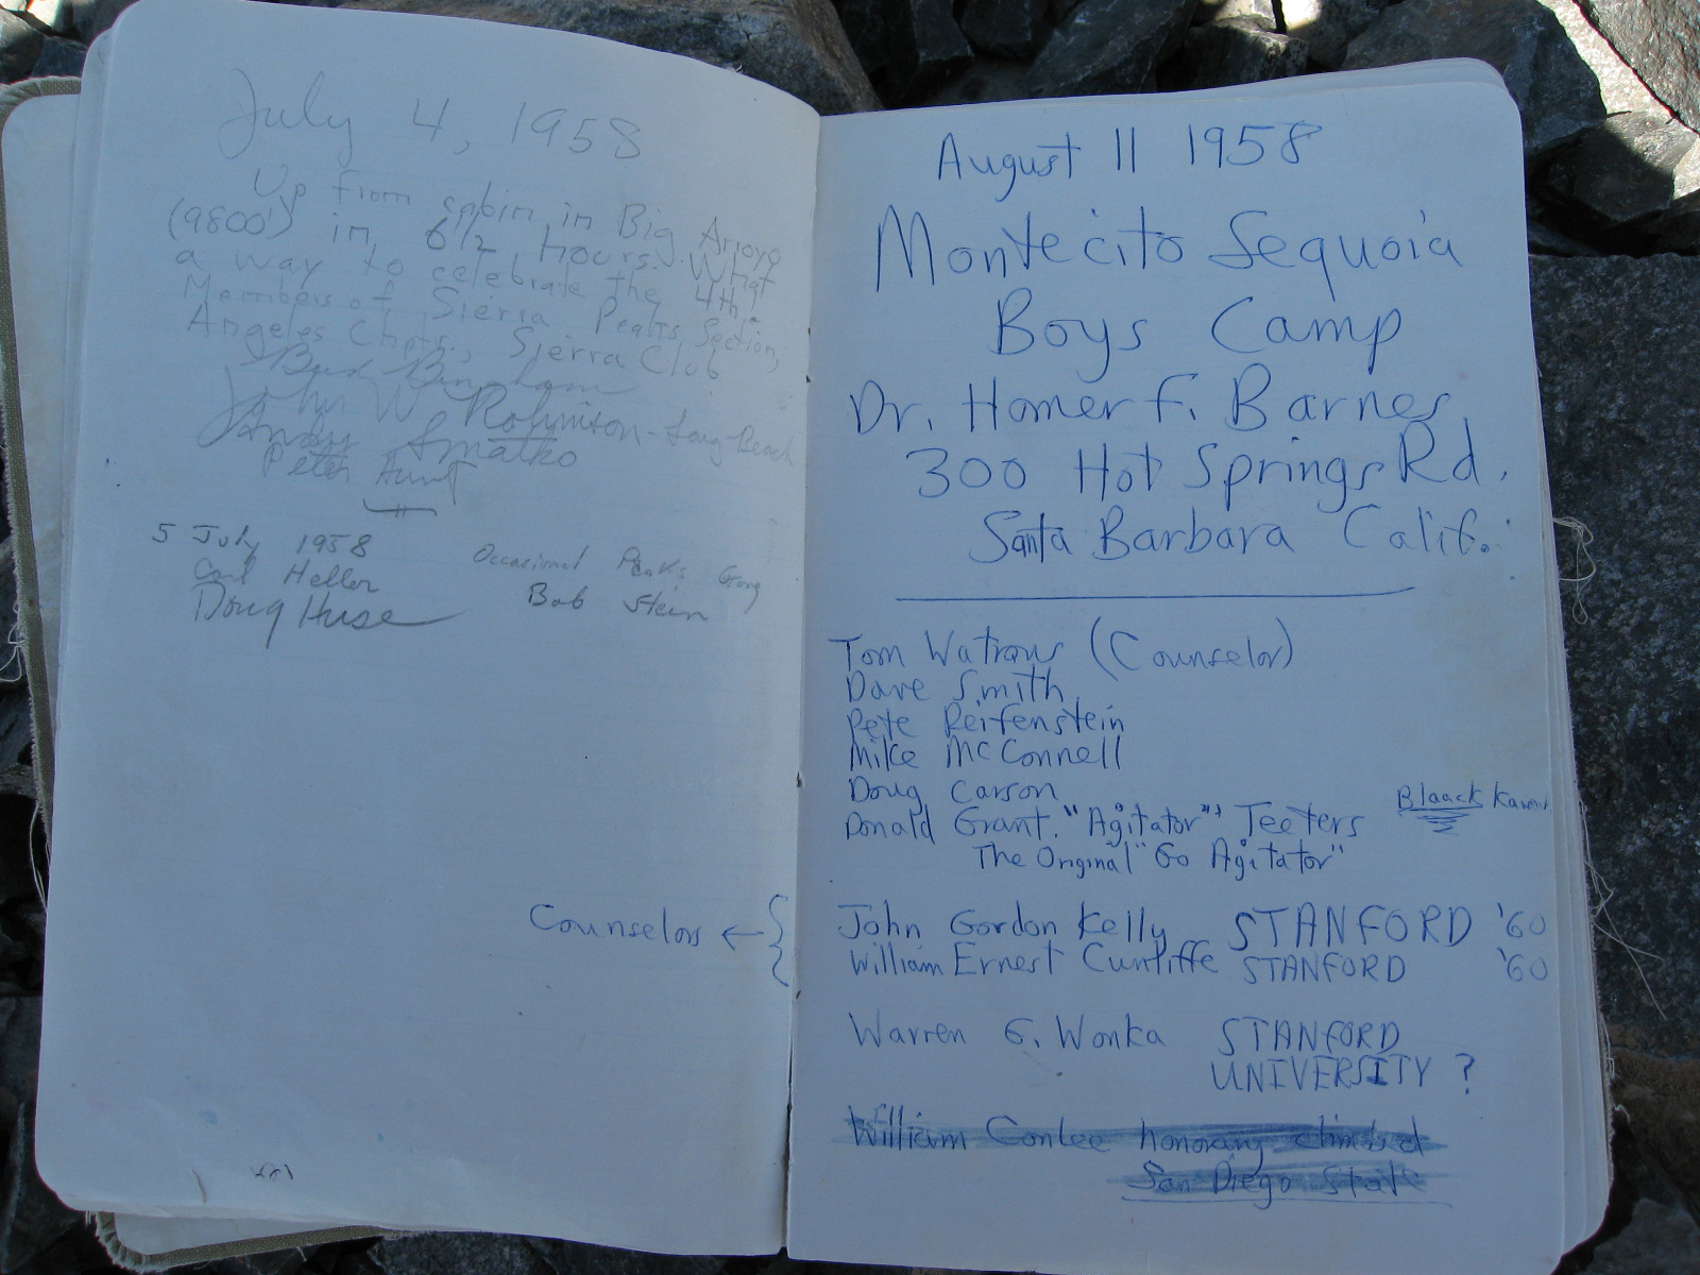 July 4, 1958
Up from cabin in Big Arroyo
(9800') in 6 1/2 hours. What
a way to celebrate the 4th.
Members of Sierra Peaks Section,
Angeles Chptr., Sierra Club
Bud Bingham
John W. Robinson - Long Beach
Andy Smatko
Peter Hunt
5 July 1958 Occasional Peaks Gang
Carl Heller Bob Stein
Doug Huse
Counselors ←
August 11 1958
Montecito Sequoia
Boys Camp
Dr. Homer F. Barnes
300 Hot Springs Rd.
Santa Barbara Calif.
Tom Watrous (Counselor)
Dave Smith
Pete Reifenstein
Mike McConnell
Doug Carson
Donald Grant. "Agitator" Teeters Blaack
The Original "Go Agitator"
John Gordon Kelly STANFORD '60
William Ernest Cunliffe STANFORD '60
Warren G. Wonka STANFORD
UNIVERSITY ?
William Conlee honorary climbed
San Diego State